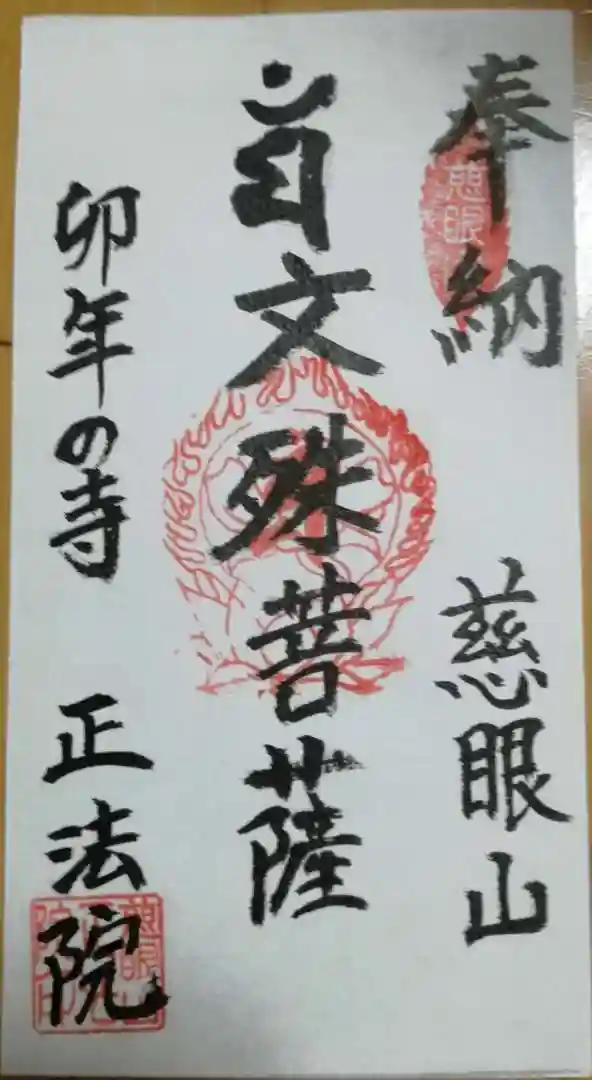 奉納 慈眼山
文殊菩薩
卯年の寺 正法院
慈眼